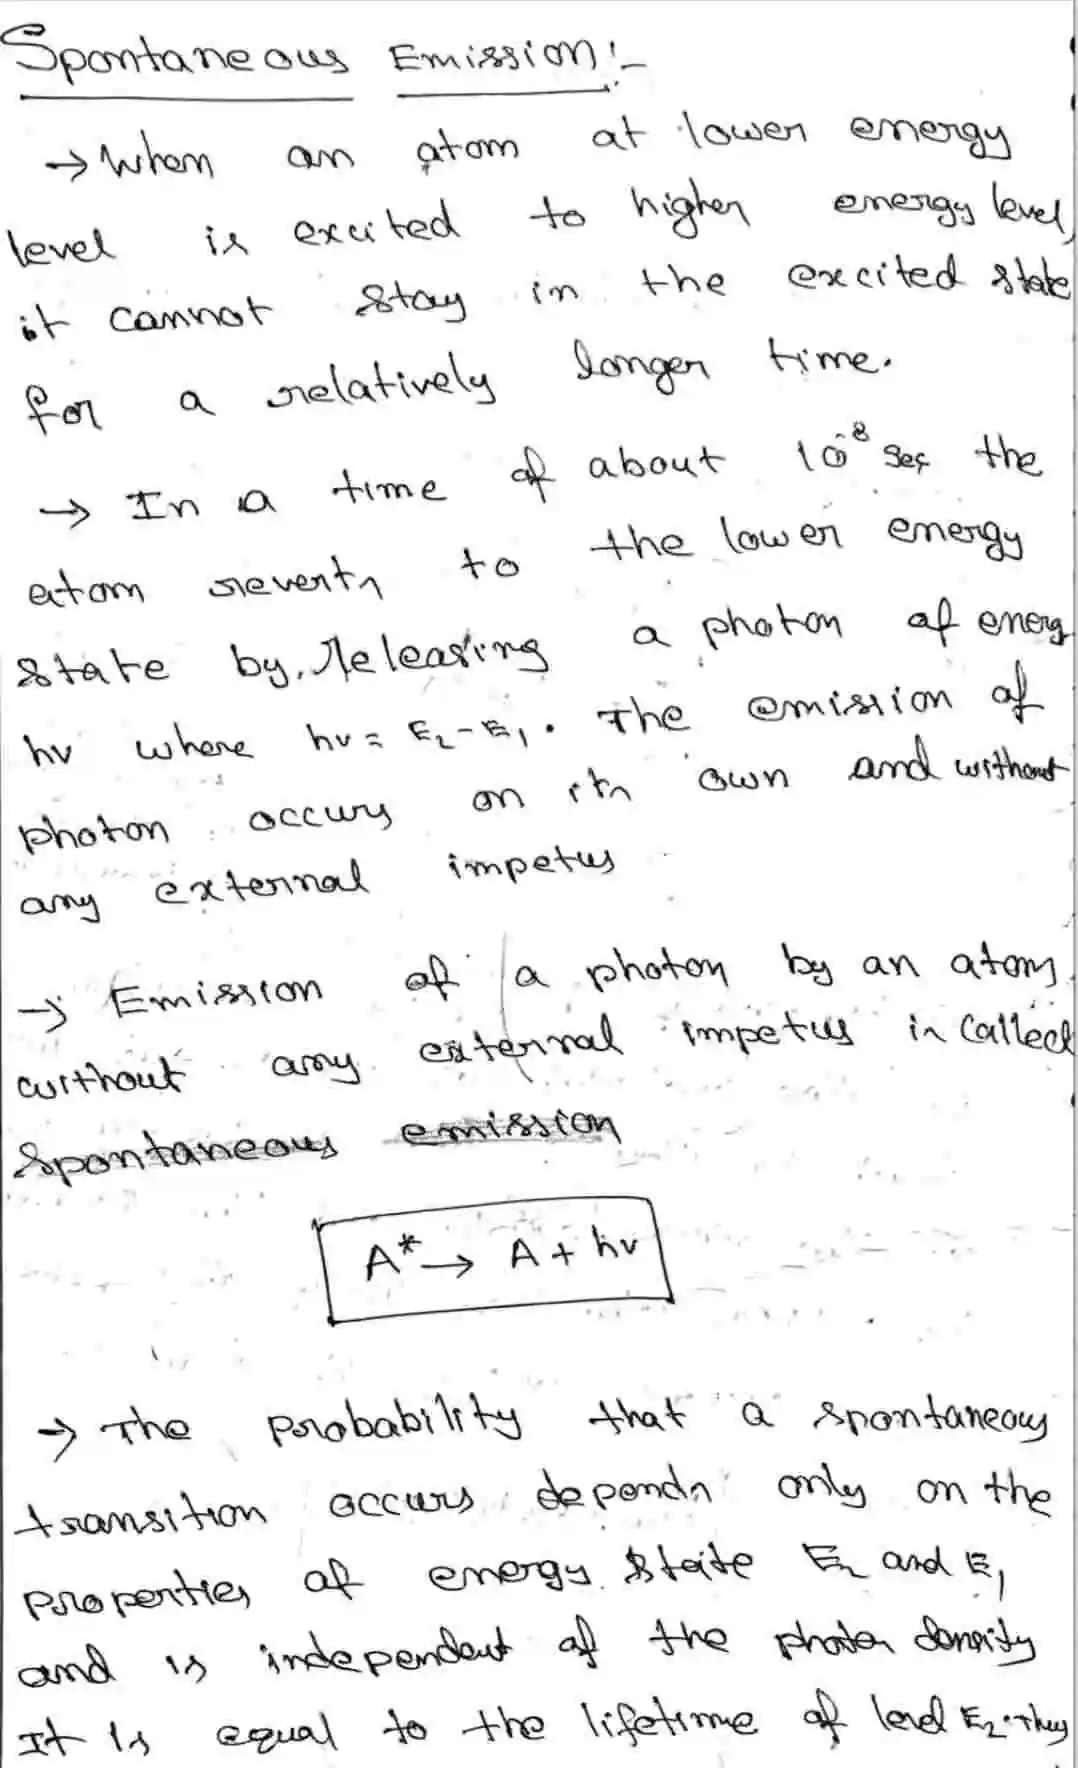 Spontaneous Emission:-
→ When an atom at lower energy
level is excited to higher energy level,
it cannot stay in the excited state
for a relatively longer time.
→ In a time of about 10⁻⁸ sec the
atom reverts to the lower energy
state by releasing a photon of energ
hν where hν = E₂-E₁. The emission of
photon occurs on its own and without
any external impetus
→ Emission of a photon by an atom
without any external impetus is called
spontaneous emission
A* → A + hν
→ The probability that a spontaneous
transition occurs depends only on the
properties of energy state E₂ and E₁
and is independent of the photon density
It is equal to the lifetime of level E₂. Thus